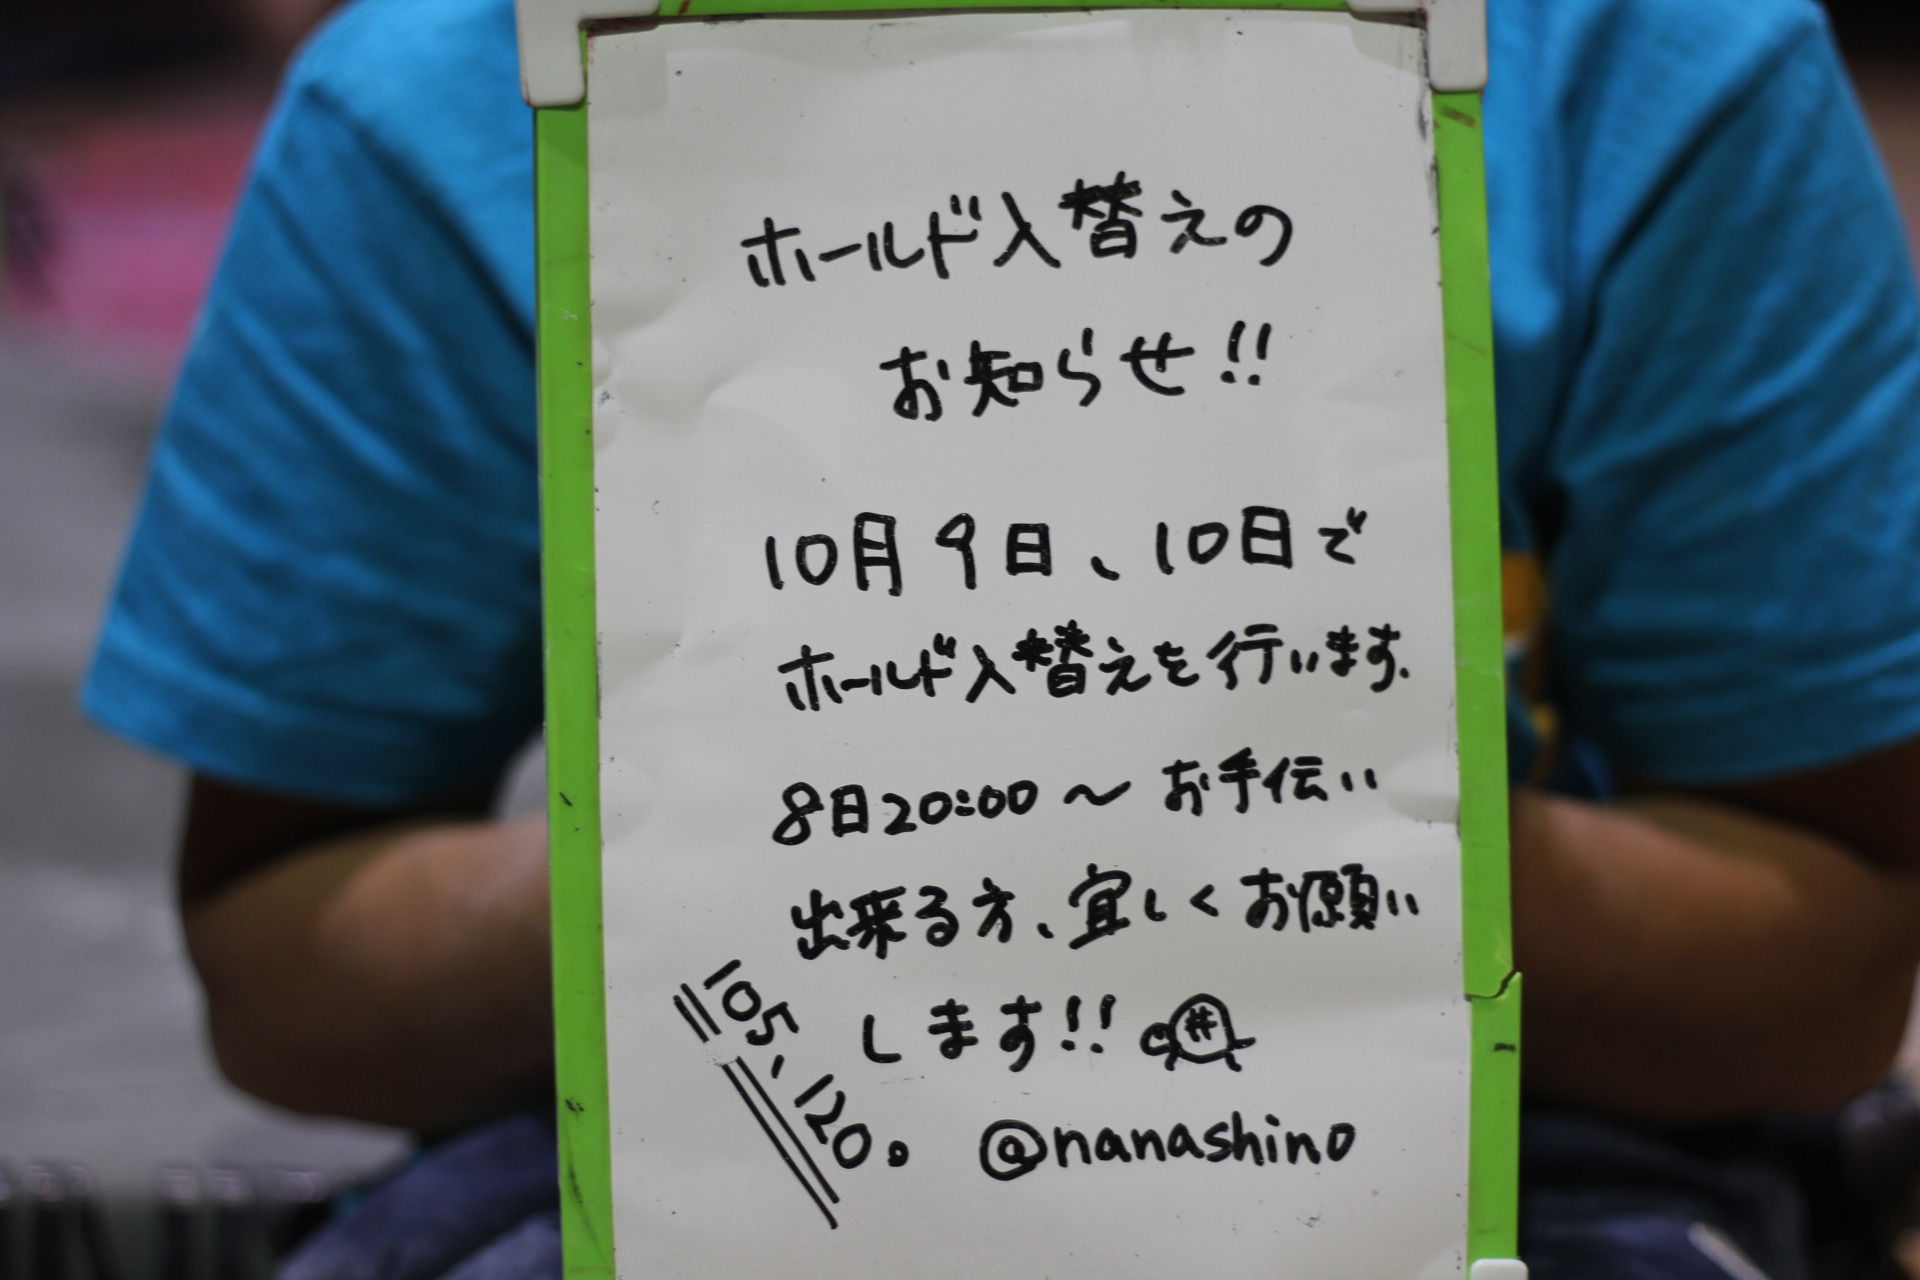 ホールド入替えの
お知らせ!!
10月9日、10日で
ホールド入替えを行います.
8日20:00～お手伝い
出来る方、宜しくお願い
します!!
105、120。
@nanashino